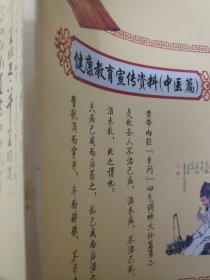 健康教育宣传资料(中医篇)
黄帝内经《素问》四气调神大论篇第二
是故圣人不治已病，治未病，不治已乱，
治未乱，此之谓也。
夫病已成而后药之，乱已成而后治
譬犹渴而穿井，斗而铸锥，不